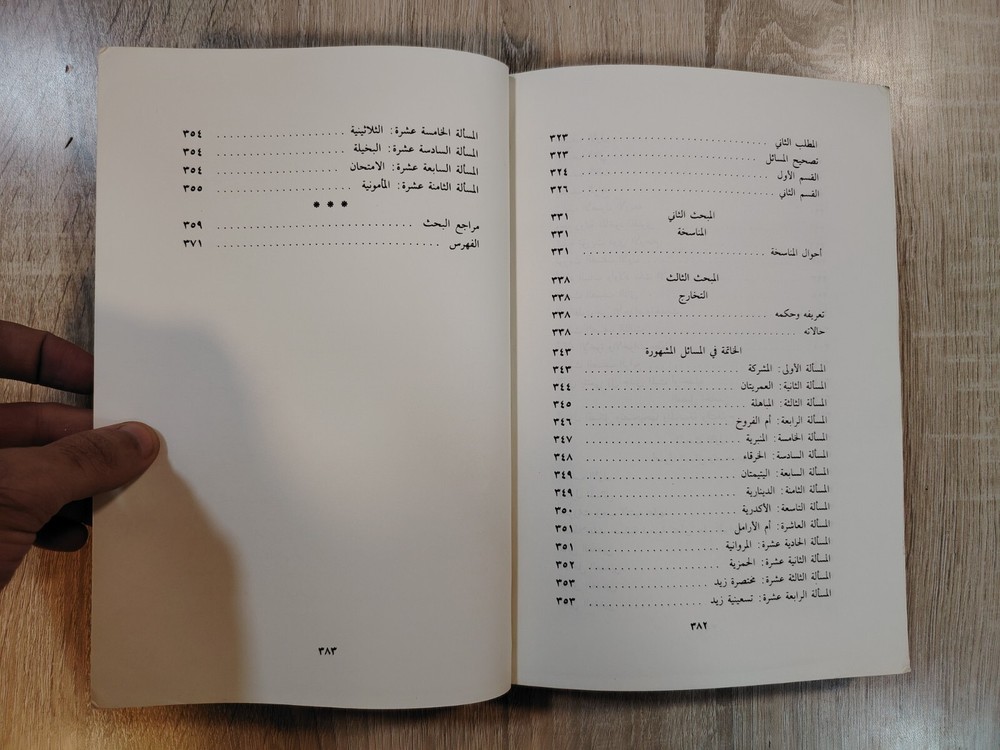 المطلب الثاني ........................ ٣٢٣
تصحيح المسائل ........................ ٣٢٣
القسم الأول ........................ ٣٢٤
القسم الثاني ........................ ٣٢٦
المبحث الثاني ٣٣١
المناسخة ٣٣١
أحوال المناسخة ........................ ٣٣١
المبحث الثالث ٣٣٨
التخارج ٣٣٨
تعريفه وحكمه ........................ ٣٣٨
حالاته ........................ ٣٣٨
الخاتمة في المسائل المشهورة ٣٤٣
المسألة الأولى: المشركة ........................ ٣٤٣
المسألة الثانية: العمريتان ........................ ٣٤٤
المسألة الثالثة: المباهلة ........................ ٣٤٥
المسألة الرابعة: أم الفروخ ........................ ٣٤٦
المسألة الخامسة: المنبرية ........................ ٣٤٧
المسألة السادسة: الخرقاء ........................ ٣٤٨
المسألة السابعة: اليتيمتان ........................ ٣٤٩
المسألة الثامنة: الدينارية ........................ ٣٤٩
المسألة التاسعة: الأكدرية ........................ ٣٥٠
المسألة العاشرة: أم الأرامل ........................ ٣٥١
المسألة الحادية عشرة: المروانية ........................ ٣٥١
المسألة الثانية عشرة: الحمزية ........................ ٣٥٢
المسألة الثالثة عشرة: مختصرة زيد ........................ ٣٥٣
المسألة الرابعة عشرة: تسعينية زيد ........................ ٣٥٣
٣٨٢
المسألة الخامسة عشرة: الثلاثينية ........................ ٣٥٤
المسألة السادسة عشرة: البخيلة ........................ ٣٥٤
المسألة السابعة عشرة: الامتحان ........................ ٣٥٤
المسألة الثامنة عشرة: المأمونية ........................ ٣٥٥
* * *
مراجع البحث ........................ ٣٥٩
الفهرس ........................ ٣٧١
٣٨٣